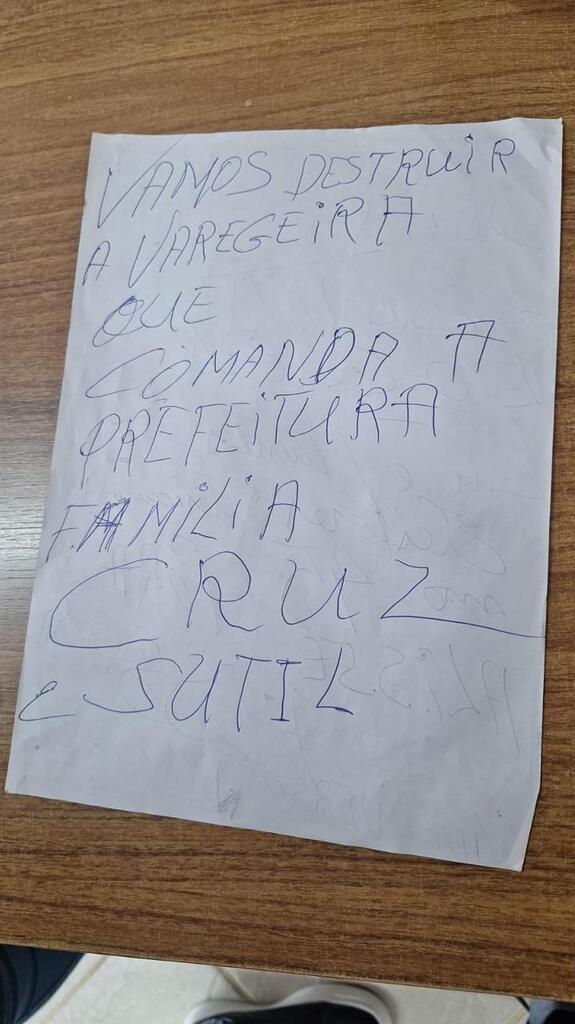 VAMOS DESTRUIR
A VAREGEIRA
QUE
COMANDA A
PREFEITURA
FAMILIA
CRUZ
e SUTIL